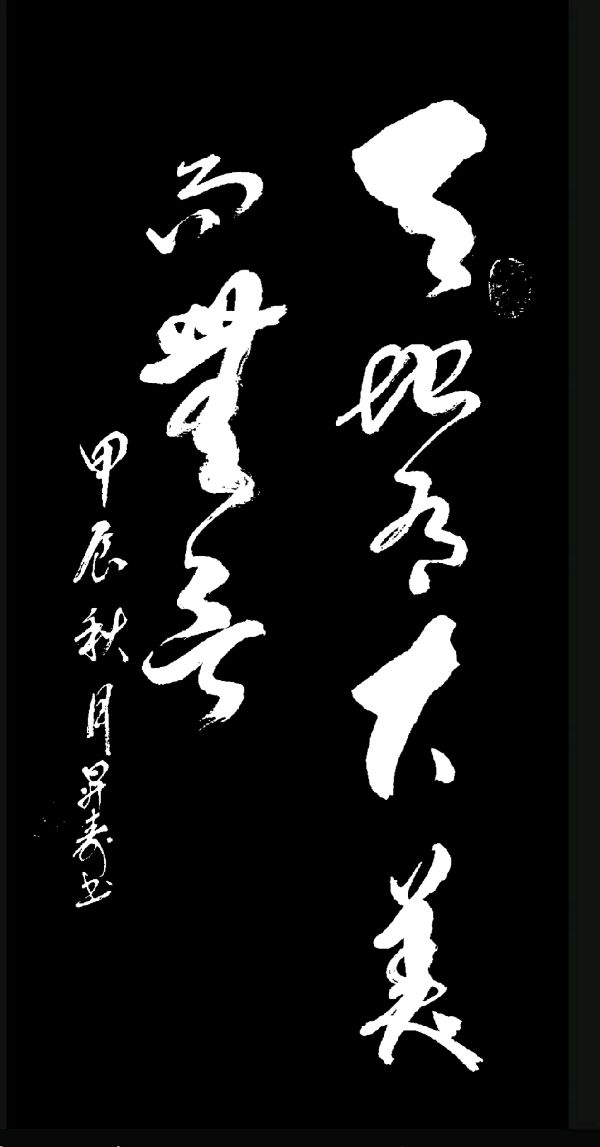 天地有大美
而無言
甲辰秋月昇寿书